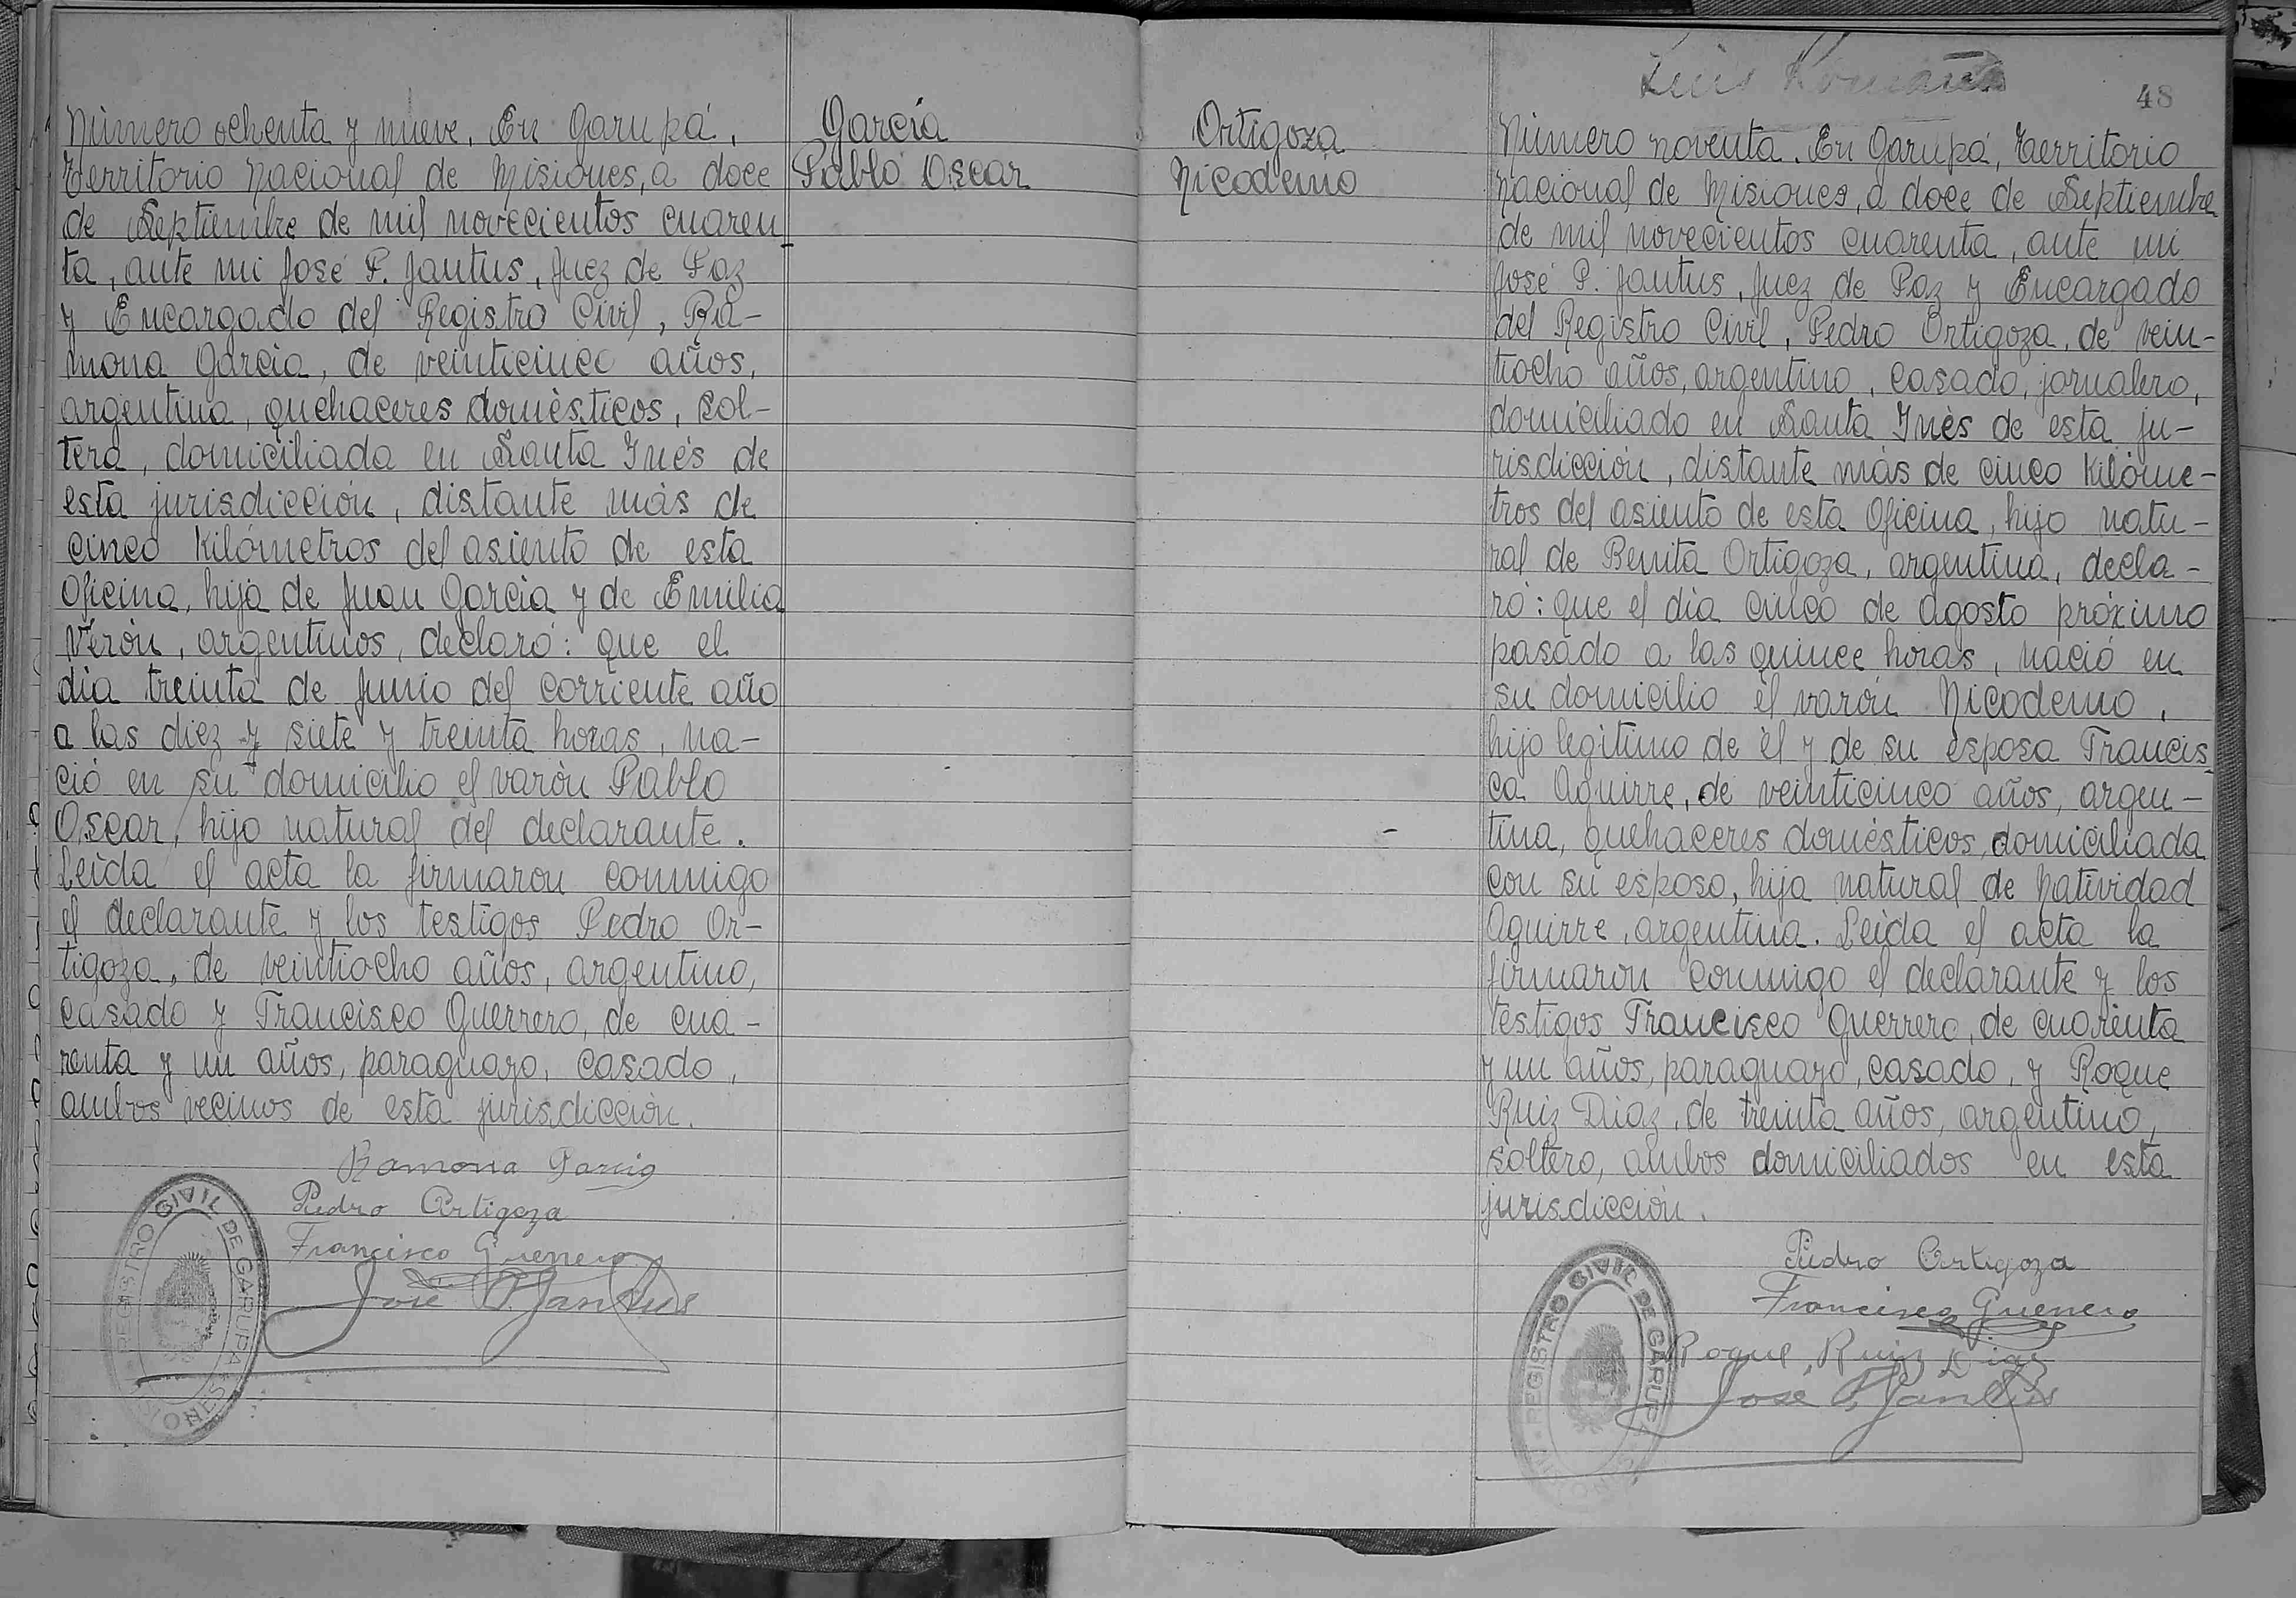 Número ochenta y nueve. En Garupá,
Territorio Nacional de Misiones, a doce
de Septiembre de mil novecientos cuaren-
ta, ante mi José P. Jantus, Juez de Paz
y Encargado del Registro Civil, Ra-
mona García, de veinticinco años,
argentina, quehaceres domèsticos, sol-
tera, domiciliada en Santa Inés de
esta jurisdicción, distante màs de
cinco Kilómetros del asiento de esta
Oficina, hija de Juan Garcìa y de Emilia
Verón, argentinos, declaró: que el
dìa treinta de Junio del corriente año
a las diez y siete y treinta horas, na-
ció en su domicilio el varòn Pablo
Oscar, hijo natural del declarante.
Leìda el acta la firmaron conmigo
el declarante y los testigos Pedro Or-
tigoza, de veintiocho años, argentino,
casado y Francisco Guerrero, de cua-
renta y un años, paraguayo, casado,
ambos vecinos de esta jurisdicciòn.
Ramona Garcia
Pedro Ortigoza
Francisco Guerrero
José P. Jantus
REGISTRO CIVIL DE GARUPA
MISIONES
García
Pablo Oscar
Ortigoza
Nicodemo
Luis
48
Número noventa. En Garupá, Territorio
Nacional de Misiones, a doce de Septiembre
de mil novecientos cuarenta, ante mi
José P. Jantus, Juez de Paz y Encargado
del Registro Civil, Pedro Ortigoza, de vein-
tiocho años, argentino, casado, jornalero,
domiciliado en Santa Inès de esta ju-
risdicción, distante màs de cinco Kilòme-
tros del asiento de esta Oficina, hijo natu-
ral de Benita Ortigoza, argentina, decla-
ró: que el dìa cinco de agosto próximo
pasado a las quince horas, nació en
su domicilio el varòn Nicodemo,
hijo legìtimo de èl y de su esposa Francis-
ca Aguirre, de veinticinco años, argen-
tina, quehaceres domésticos, domiciliada
con su esposo, hija natural de Natividad
Aguirre, argentina. Leìda el acta la
firmaron conmigo el declarante y los
testigos Francisco Guerrero, de cuarenta
y un años, paraguayo, casado, y Roque
Ruiz Diaz, de treinta años, argentino,
soltero, ambos domiciliados en esta
jurisdicciòn.
Pedro Ortigoza
Francisco Guerrero
Roque Ruiz Diaz
José P. Jantus
REGISTRO CIVIL DE GARUPA